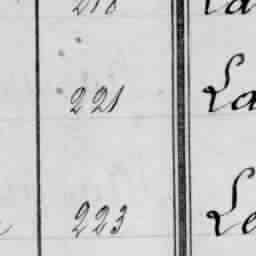 218 La
221 La
223 Le